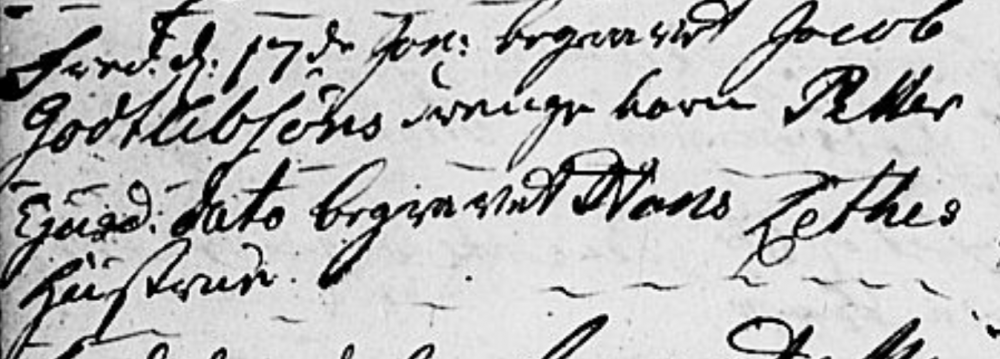 Fred: d: 17de Jan: begravet Jacob
Godtlibsøns drenge barn Peter
Ejusd: dato begravet Hans Lethes
Hustrue.